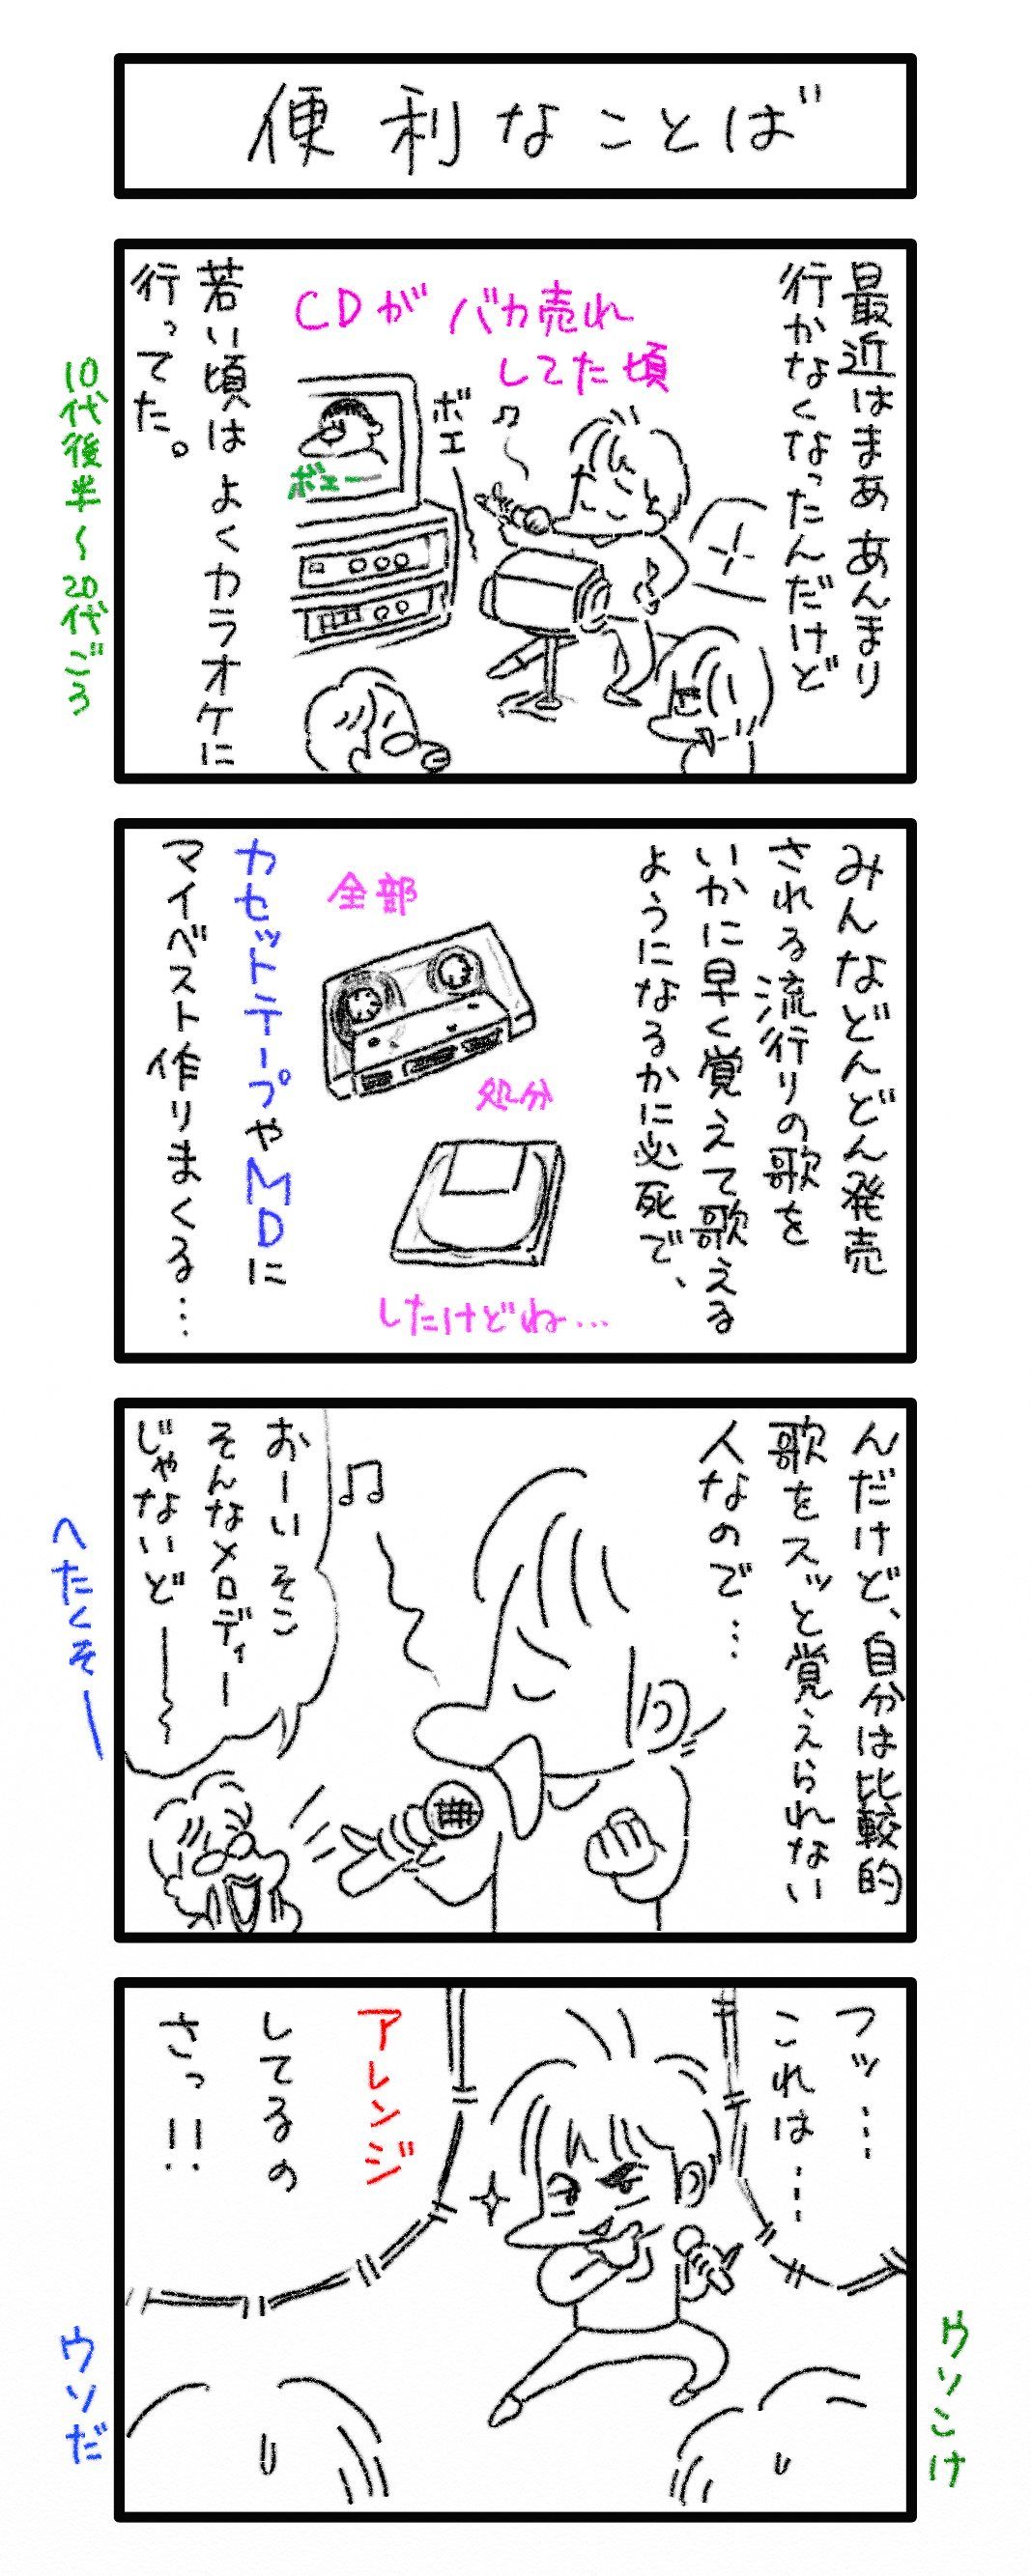 便利なことば
最近はまああんまり
行かなくなったんだけど
CDがバカ売れ
してた頃
ボエー
ボエー
若い頃はよくカラオケに
行ってた。
10代後半~20代ごろ
みんなどんどん発売
される流行りの歌を
いかに早く覚えて歌える
ようになるかに必死で、
全部
処分
したけどね…
カセットテープやMDに
マイベスト作りまくる…
んだけど、自分は比較的
歌をスッと覚えられない
人なので…
おーいそこ
そんなメロディー
じゃないど――
へたくそー
フッ…
これは…
アレンジ
してるの
さっ!!
ウソこけ
ウソだ